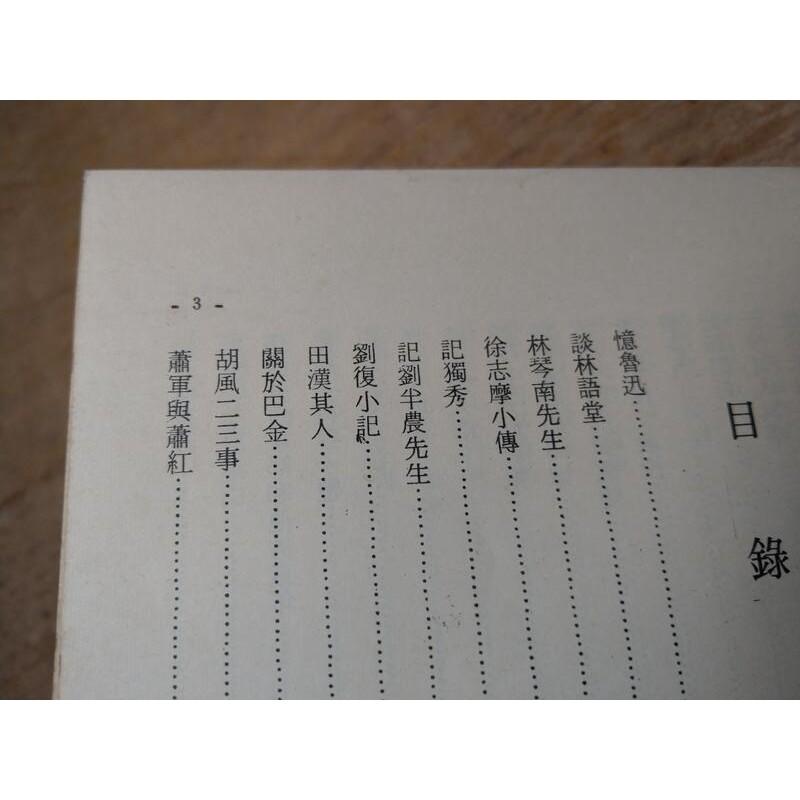 目錄
憶魯迅
談林語堂
林琴南先生
徐志摩小傳
記獨秀
記劉半農先生
劉復小記
田漢其人
關於巴金
胡風二三事
蕭軍與蕭紅
- 3 -